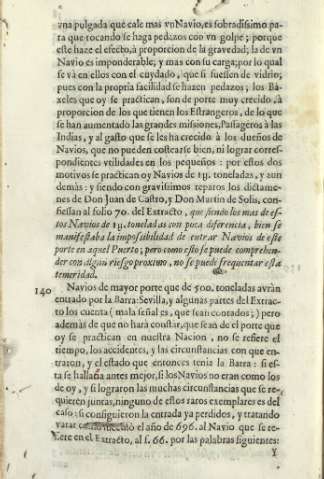 vna pulgada que cale mas vn Navio, es sobradissimo pa-
ra que tocando se haga pedazos con vn golpe; porque
este haze el efecto, à proporcion de la gravedad; la de vn
Navio es imponderable; y mas con su carga; por lo qual
se và en ellos con el cuydado, que si fuessen de vidrio;
pues con la propria facilidad se hazen pedazos; los Ba-
xeles que oy se practican, son de porte muy crecido, à
proporcion de los que tienen los Estrangeros, de lo que
se han aumentado las grandes missiones, Passageros à las
Indias, y al gasto que se les ha crecido à los dueños de
Navios, que no pueden costearse bien, ni lograr corres-
pondientes vtilidades en los pequeños: por estos dos
motivos se practican oy Navios de 1y. toneladas, y aun
demàs: y siendo con gravissimos reparos los dictame-
nes de Don Juan de Castro, y Don Martin de Solis, con-
fiessan al folio 70. del Extracto, que siendo los mas de es-
tos Navios de 1y. toneladas con poca diferencia, bien se
manifestaba la impossibilidad de entrar Navios de este
porte en aquel Puerto; pero como esto se puede comprehen-
der con algun riesgo proximo, no se puede frequentar esta
temeridad.
140 Navios de mayor porte que de 500. toneladas avràn
entrado por la Barra: Sevilla, y algunas partes del Extrac-
to los cuenta (mala señal es, que sean contados;) pero
ademàs de que no harà constar, que sean de el porte que
oy se practican en nuestra Nacion, no se refiere el
tiempo, los accidentes, y las circunstancias con que en-
traron, y el estado que entonces tenia la Barra: si es-
ta se hallaria antes mejor, si los Navios no eran como los
de oy, y si lograron las muchas circunstancias que se re-
quieren juntas, ninguno de estos raros exemplares es del
caso: si consiguieron la entrada ya perdidos, y tratando
varar como sucediò el año de 696. al Navio que se
refiere en el Extracto, al f. 66. por las palabras siguientes:
Y